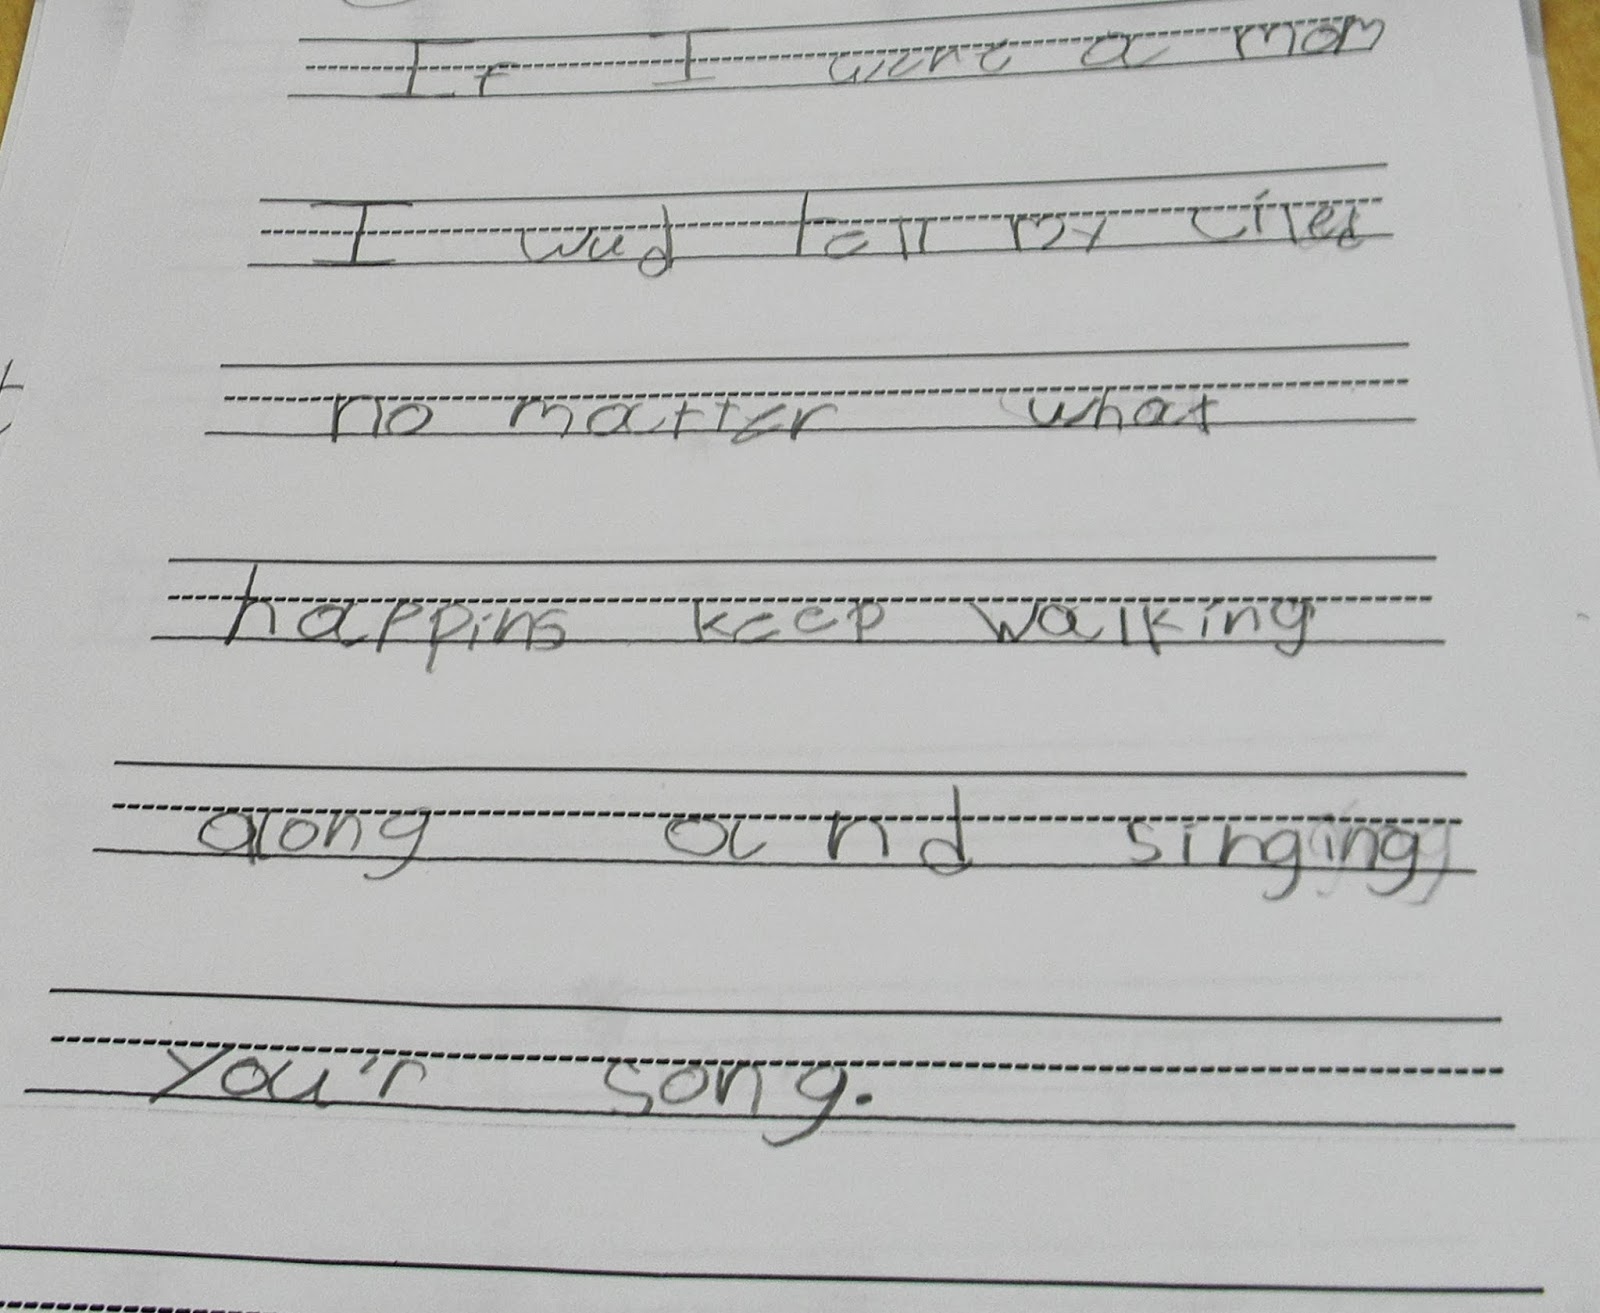 If I were a mom
I wud tell my ciled
no matter what
happins keep walking
along and singing
you'r song.